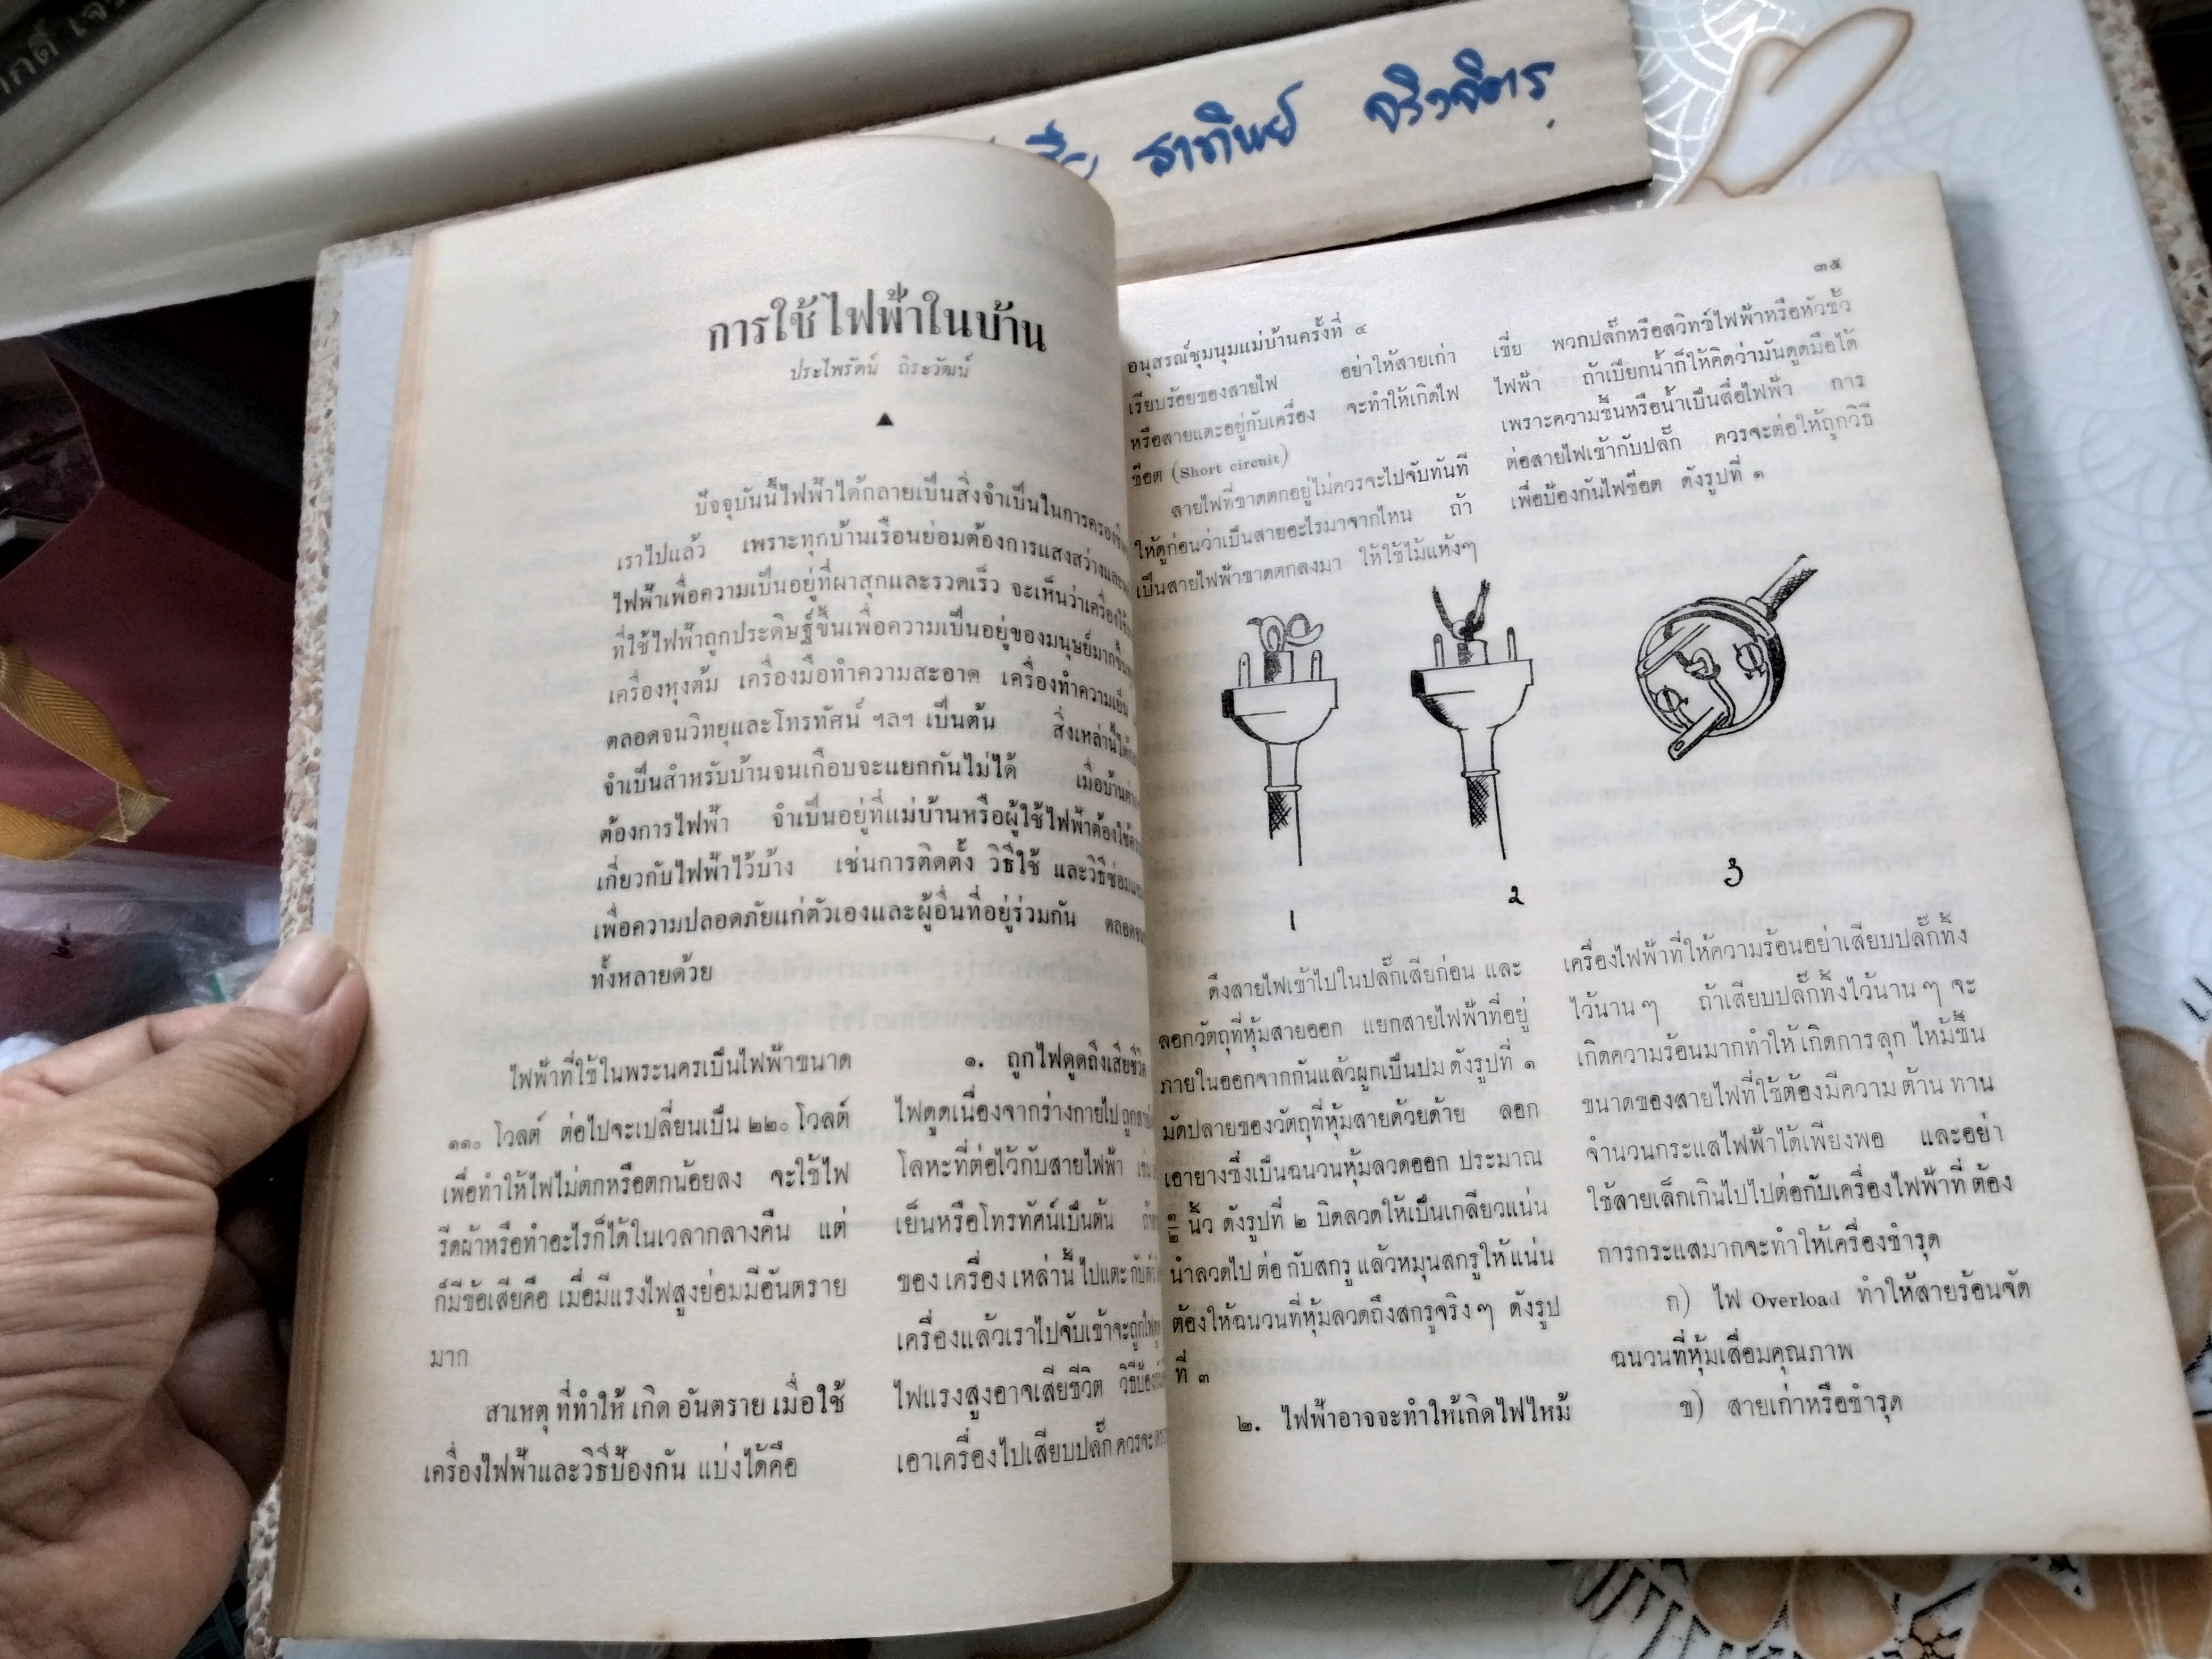 ธาทินย์ จริงจิตร
การใช้ไฟฟ้าในบ้าน
ประไพรัตน์ ถิระวัฒน์
ปัจจุบันนี้ไฟฟ้าได้กลายเป็นสิ่งจำเป็นในการครองชีพ
เราไปแล้ว เพราะทุกบ้านเรือนย่อมต้องการแสงสว่างและ
ไฟฟ้าเพื่อความเป็นอยู่ที่ผาสุกและรวดเร็ว จะเห็นว่าเครื่องใช้
ที่ใช้ไฟฟ้าถูกประดิษฐ์ขึ้นเพื่อความเป็นอยู่ของมนุษย์มากขึ้น
เครื่องหุงต้ม เครื่องมือทำความสะอาด เครื่องทำความเย็น
ตลอดจนวิทยุและโทรทัศน์ ฯลฯ เป็นต้น สิ่งเหล่านี้ได้
จำเป็นสำหรับบ้านจนเกือบจะแยกกันไม่ได้ เมื่อบ้าน
ต้องการไฟฟ้า จำเป็นอยู่ที่แม่บ้านหรือผู้ใช้ไฟฟ้าต้องใช้
เกี่ยวกับไฟฟ้าไว้บ้าง เช่นการติดตั้ง วิธีใช้ และวิธีซ่อม
เพื่อความปลอดภัยแก่ตัวเองและผู้อื่นที่อยู่ร่วมกัน ตลอดจน
ทั้งหลายด้วย
ไฟฟ้าที่ใช้ในพระนครเป็นไฟฟ้าขนาด
๑๑๐ โวลต์ ต่อไปจะเปลี่ยนเป็น ๒๒๐ โวลต์
เพื่อทำให้ไฟไม่ตกหรือตกน้อยลง จะใช้ไฟ
รีดผ้าหรือทำอะไรก็ได้ในเวลากลางคืน แต่
ก็มีข้อเสียคือ เมื่อมีแรงไฟสูงย่อมมีอันตราย
มาก
สาเหตุ ที่ทำให้ เกิด อันตราย เมื่อใช้
เครื่องไฟฟ้าและวิธีป้องกัน แบ่งได้คือ
๑. ถูกไฟดูดถึงเสียชีวิต
ไฟดูดเนื่องจากร่างกายไป
โลหะที่ต่อไว้กับสายไฟฟ้า เช่น
เย็นหรือโทรทัศน์เป็นต้น
ของ เครื่อง เหล่านี้ ไปแตะ
เครื่องแล้วเราไปจับเข้าจะถูก
ไฟแรงสูงอาจเสียชีวิต
เอาเครื่องไปเสียบปลั๊ก ควรจะ
๓๕
อนุสรณ์ชุมนุมแม่บ้านครั้งที่ ๔
เรียบร้อยของสายไฟ อย่าให้สายเก่า
หรือสายแตะอยู่กับเครื่อง จะทำให้เกิดไฟ
ช๊อต (Short circuit)
สายไฟที่ขาดตกอยู่ไม่ควรจะไปจับทันที
ให้ดูก่อนว่าเป็นสายอะไรมาจากไหน ถ้า
เป็นสายไฟฟ้าขาดตกลงมา ให้ใช้ไม้แห้งๆ
เขี่ย พวกปลั๊กหรือสวิทช์ไฟฟ้าหรือหัวขั้ว
ไฟฟ้า ถ้าเปียกน้ำก็ให้คิดว่ามันดูดมือได้
เพราะความชื้นหรือน้ำเป็นสื่อไฟฟ้า การ
ต่อสายไฟเข้ากับปลั๊ก ควรจะต่อให้ถูกวิธี
เพื่อป้องกันไฟช๊อต ดังรูปที่ ๑
1
2
3
ดึงสายไฟเข้าไปในปลั๊กเสียก่อน และ
ลอกวัตถุที่หุ้มสายออก แยกสายไฟฟ้าที่อยู่
ภายในออกจากกันแล้วผูกเป็นปม ดังรูปที่ ๑
มัดปลายของวัตถุที่หุ้มสายด้วยด้าย ลอก
เอายางซึ่งเป็นฉนวนหุ้มลวดออก ประมาณ
นิ้ว ดังรูปที่ ๒ บิดลวดให้เป็นเกลียวแน่น
นำลวดไป ต่อ กับสกรู แล้วหมุนสกรูให้แน่น
ต้องให้ฉนวนที่หุ้มลวดถึงสกรูจริงๆ ดังรูป
ที่ ๓
๒. ไฟฟ้าอาจจะทำให้เกิดไฟไหม้
เครื่องไฟฟ้าที่ให้ความร้อนอย่าเสียบปลั๊กทิ้ง
ไว้นานๆ ถ้าเสียบปลั๊กทิ้งไว้นาน ๆ จะ
เกิดความร้อนมากทำให้ เกิดการ ลุก ไหม้ขึ้น
ขนาดของสายไฟที่ใช้ต้องมีความ ต้าน ทาน
จำนวนกระแสไฟฟ้าได้เพียงพอ และอย่า
ใช้สายเล็กเกินไปไปต่อกับเครื่องไฟฟ้าที่ ต้อง
การกระแสมากจะทำให้เครื่องชำรุด
ก) ไฟ Overload ทำให้สายร้อนจัด
ฉนวนที่หุ้มเสื่อมคุณภาพ
ข) สายเก่าหรือชำรุด